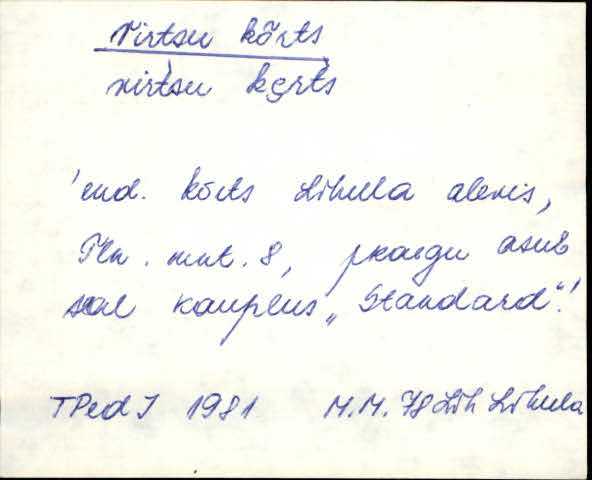 Virtsu kõrts
virtsu kęrts
'end. kõrts Lihula alevis,
Tln. mnt. 8, praegu asub
seal kauplus „Standard“.'
TPedI 1981 M.M. 78 Lih Lihula